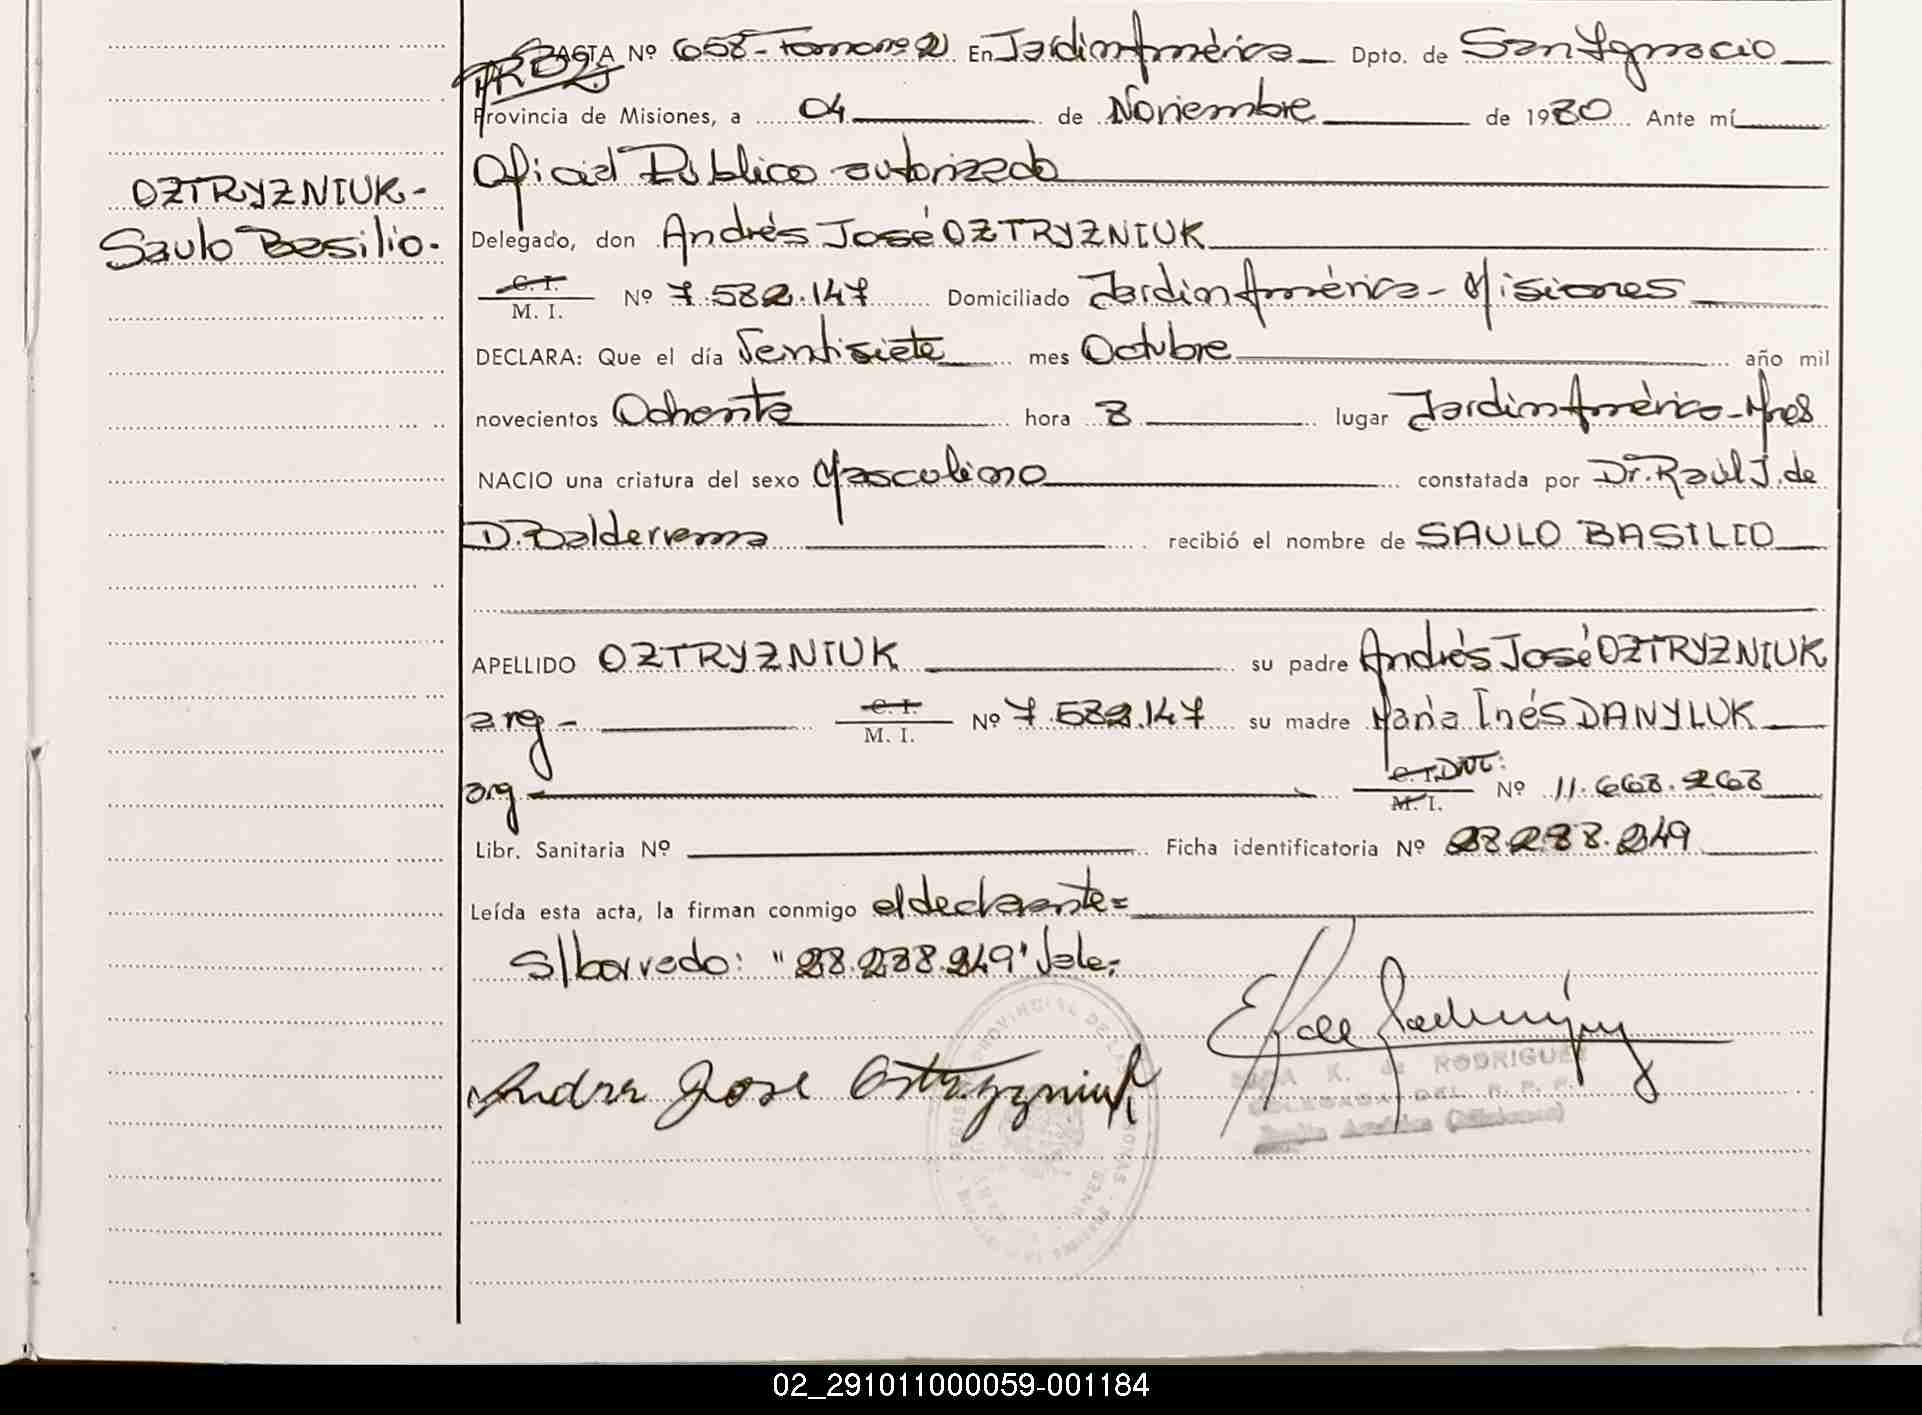 ACTA Nº 658- Tomo nº 2 En Jardín América Dpto. de San Ignacio
Provincia de Misiones, a 04 de Noviembre de 1980 Ante mí
Oficial Público autorizado
OZTRYZNIUK-
Saulo Basilio.
Delegado, don Andrés José OZTRYZNIUK
C. I.
M. I. Nº 7.582.147 Domiciliado Jardín América - Misiones
DECLARA: Que el día Ventisiete mes Octubre año mil
novecientos Ochenta hora 8 lugar Jardín América - Mnes
NACIO una criatura del sexo Masculino constatada por Dr. Raúl J. de
D. Balderrama recibió el nombre de SAULO BASILIO
APELLIDO OZTRYZNIUK su padre Andrés José OZTRYZNIUK
arg - C. I. M. I. Nº 7.582.147 su madre María Inés DANYLUK
arg C. I. DNI: M. I. Nº 11.668.268
Libr. Sanitaria Nº Ficha identificatoria Nº 28.288.249
Leída esta acta, la firman conmigo el declarante=
S/borrado: "28.288.249" Vale.-
Andres Jose Oztryzniuk
K. de RODRIGUEZ
DELEGADA DEL R. P. P.
Jardín América (Misiones)
02_291011000059-001184